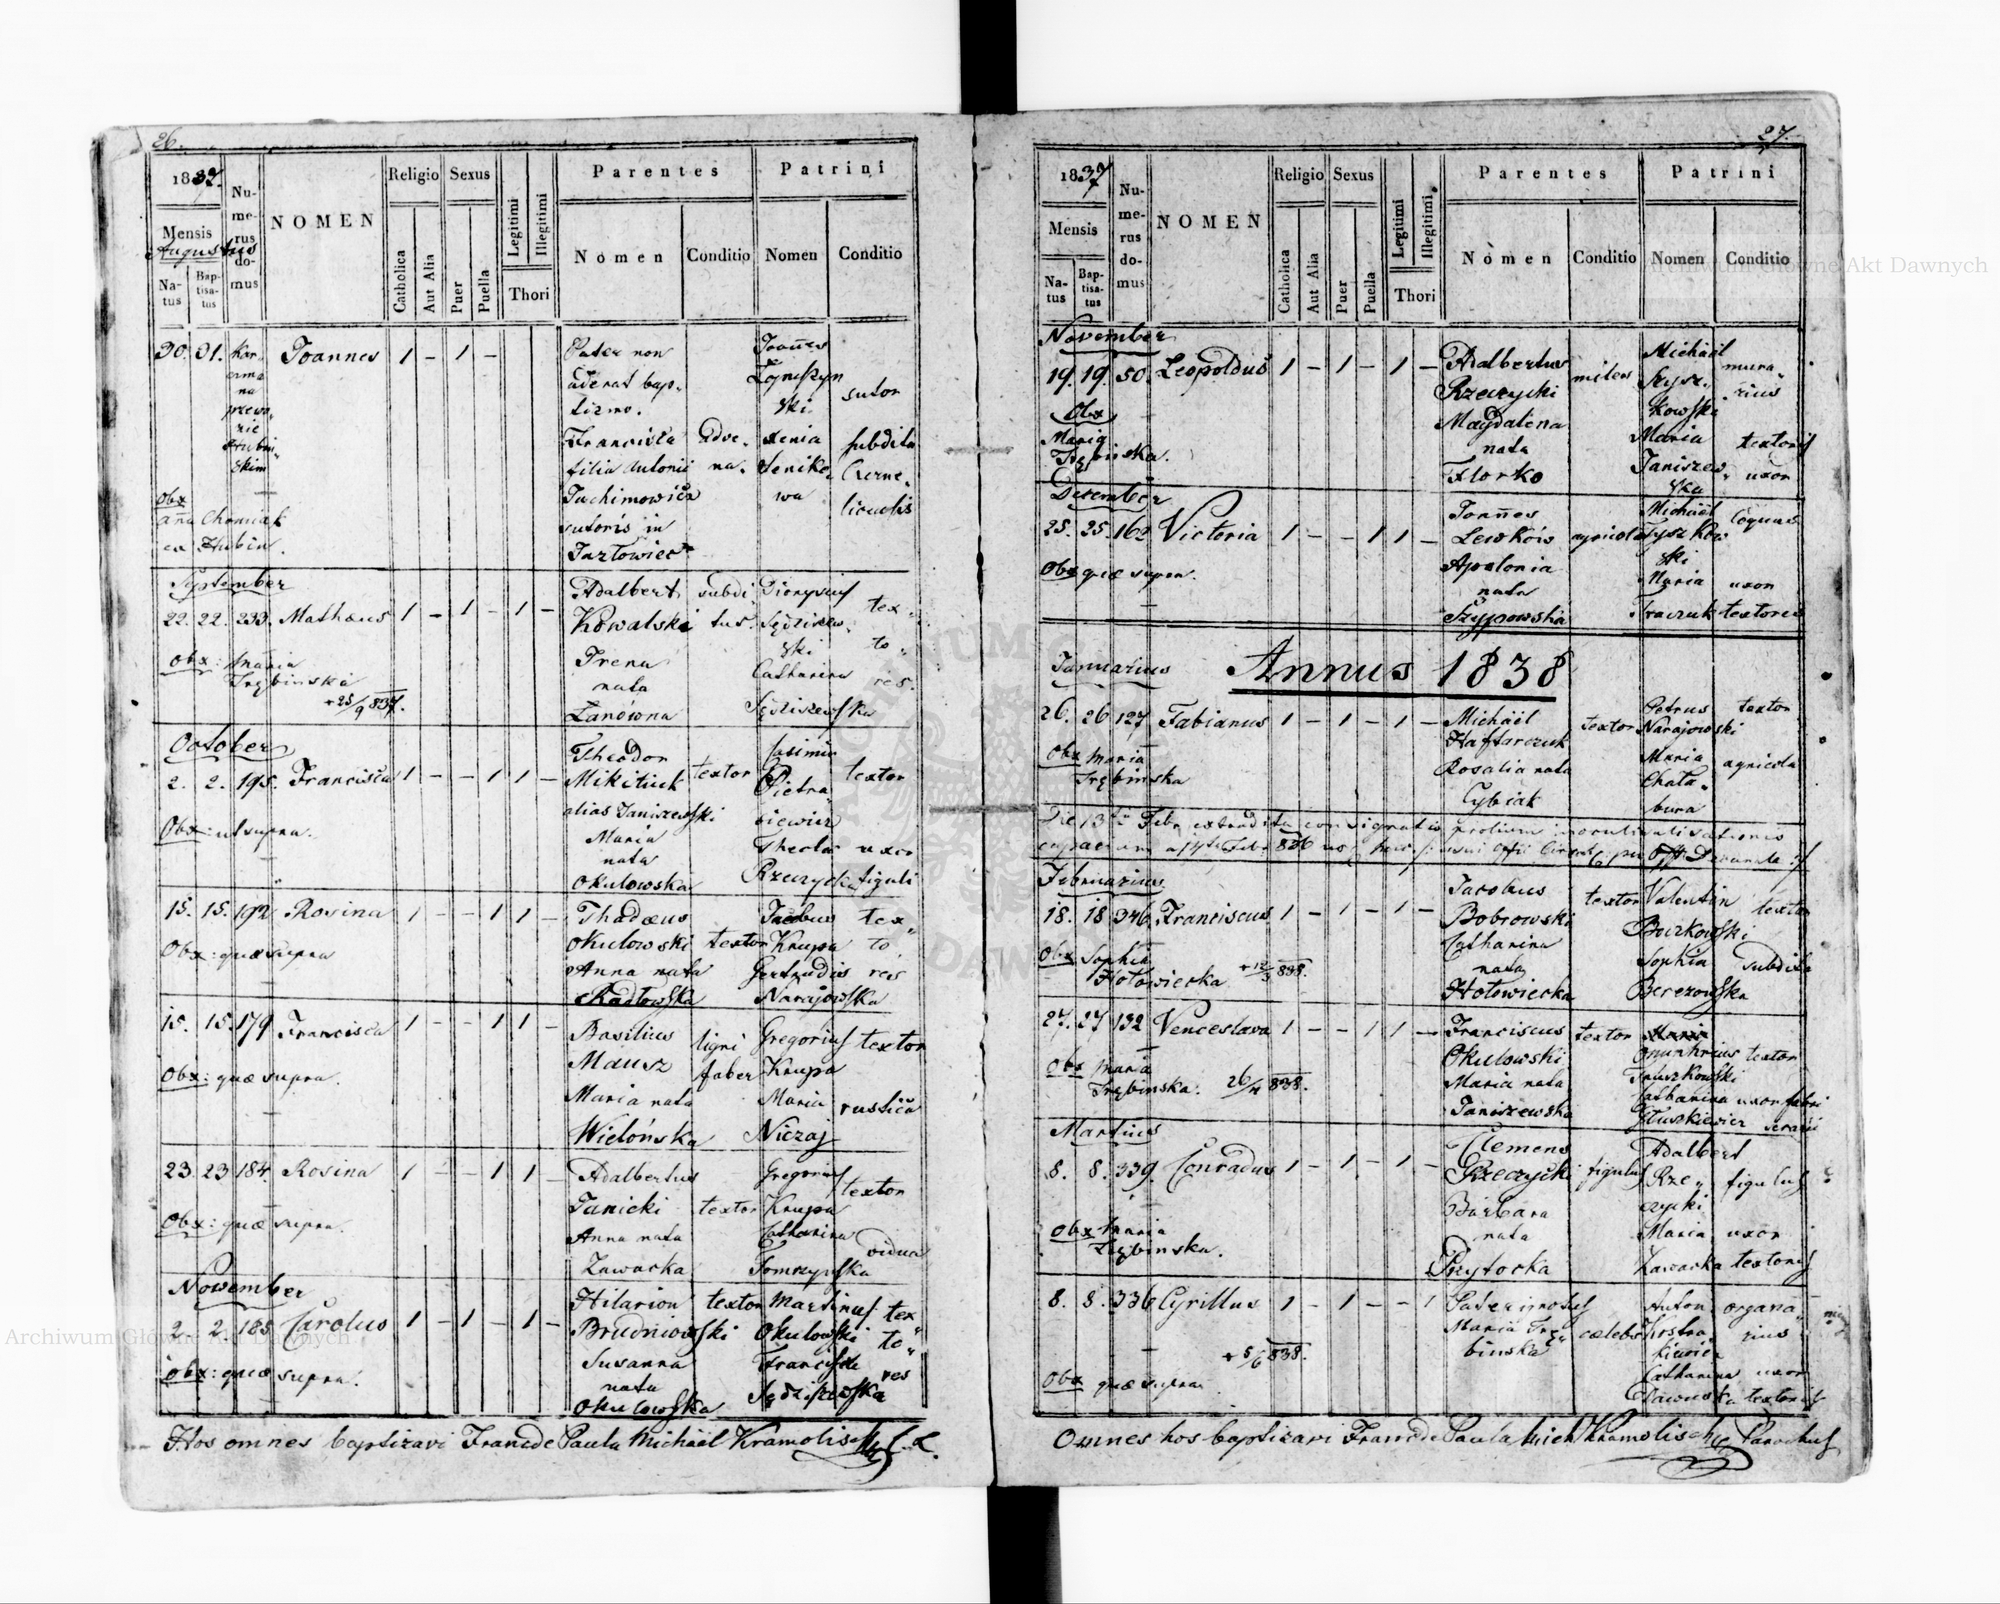 26.
1837.
Numerus domus
NOMEN
Religio
Sexus
Legitimi
Illegitimi
Parentes
Patrini
Mensis
Augustus
Natus
Baptisatus
Catholica
Aut Alia
Puer
Puella
Thori
Nomen
Conditio
Nomen
Conditio
30. 31. Joannes 1 – 1 –
Pater non
aderat bap-
tizmo.
Francisca
filia Antonii
Jachimowicz
sutoris in
Jazłowiec
adve-
na.
Joannes
sutor
Xenia
subdita
Obx
September
22. 22. 233. Mathæus 1 – 1 – 1 –
Adalbert
Kowalski
Irena
nata
Łanówna
subdi-
tus.
Dionysius
Catharina
tex-
to-
res.
Obx: Maria
Trębinska
+ 25/9 837.
October
2. 2. 195. Francisca 1 – – 1 1 –
Theodor
Mikitiuk
alias Janiszewski
Maria
nata
Okulowska
textor
Casimir
Pietra-
siewicz
Thecla
Rzeczycka
textor
uxor
figuli
Obx: ut supra.
15. 15. 192 Rosina 1 – – 1 1 –
Thadæus
Okulowski
Anna nata
Radłowska
textor
Jacobus
Krupa
Gertrudis
Narajowska
tex-
to-
res
Obx: quæ supra
15. 15. 179 Francisca 1 – – 1 1 –
Basilius
Mausz
Maria nata
Wielońska
ligni
faber
Gregorius
Krupa
Maria
Niczaj
textor
rustica
Obx: quæ supra.
23. 23 184. Rosina 1 – – 1 1 –
Adalbertus
Janicki
Anna nata
Zawacka
textor
Gregorius
Krupa
Catharina
Tomczyńska
textor
vidua
Obx: quæ supra.
November
2. 2. 185. Carolus 1 – 1 – 1 –
Hilarion
Brudniowski
Susanna
nata
Okulowska
textor
Martinus
Okulowski
Francisca
Sędziszewska
tex-
to-
res
Obx: quæ supra.
Hos omnes baptizavi Franc de Paula Michaël Kramolisch
27.
1837
Numerus domus
NOMEN
Religio
Sexus
Legitimi
Illegitimi
Parentes
Patrini
Mensis
Natus
Baptisatus
Catholica
Aut Alia
Puer
Puella
Thori
Nomen
Conditio
Nomen
Conditio
November
19. 19. 50. Leopoldus 1 – 1 – 1 –
Adalbertus
Rzeczycki
Magdalena
nata
Florko
miles
Michaël
Szysz-
kowski
Maria
Janiszew-
ska
mura-
rius
textoris
uxor
Obx
Maria
Trębinska.
December
25. 25. 162 Victoria 1 – – 1 1 –
Joannes
Lewków
Apolonia
nata
Szypowska
agricola
Michaël
Tyszkow
ski
Maria
Tkaczuk
coquus
uxor
textoris
Obx quæ supra.
Annus 1838
Januarius
26. 26 127 Fabianus 1 – 1 – 1 –
Michaël
Haftarczuk
Rosalia nata
Cybiak
textor
Petrus
Narajowski
Maria
Chała-
bura
textor
agricola
Obx Maria
Trębinska
Februarius
18. 18 346 Franciscus 1 – 1 – 1 –
Jacobus
Bobrowski
Catharina
nata
Hołowiecka
textor
Valentin
Buczkowski
Sophia
Berezowska
textor
subdita
Obx Sophia
Hołowiecka
+ 12/3 838.
27. 27 132 Venceslava 1 – – 1 1 –
Franciscus
Okulowski
Maria nata
Janiszewska
textor
Onuphrius
Catharina
textor
uxor fabri
Obx Maria
Trębinska.
26/4 838.
Martius
8. 8. 339. Conradus 1 – 1 – 1 –
Clemens
Rzeczycki
Barbara
nata
Przytocka
figulus
Adalbert
Rze-
czycki
Maria
Zawacka
figulus
uxor
textoris
Obx Maria
Trębinska.
8. 8. 336 Cyrillus 1 – 1 – – 1
Pater ignotus
Maria Trę-
binska
cælebs
Anton
Kostra-
kiewicz
Catharina
organa-
rius
uxor
textoris
+ 5/6 838.
Obx quæ supra
Omnes hos baptizavi Franc de Paula Mich Kramolisch Parochus
Archiwum Główne Akt Dawnych
Archiwum Główne Akt Dawnych